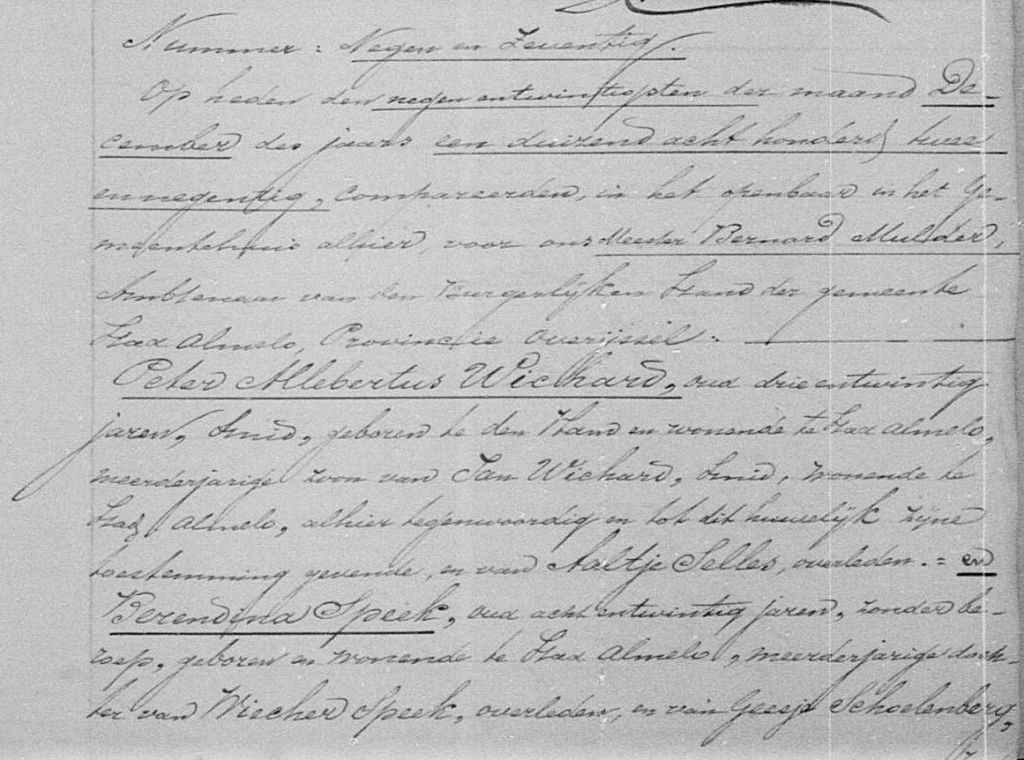 Nummer: Negen en Zeventig.
Op heden den negen entwintigsten der maand De-
cember des jaars een duizend acht honderd twee
ennegentig, compareerden, in het openbaar in het Ge-
meentehuis alhier, voor ons Meester Bernard Mulder,
Ambtenaar van den Burgerlijken Stand der gemeente
Stad Almelo, Provincie Overijssel. —
Peter Allebertus Wichard, oud drie entwintig
jaren, Smid, geboren te den Ham en wonende te Stad Almelo,
meerderjarige zoon van Jan Wichard, Smid, wonende te
Stad Almelo, alhier tegenwoordig en tot dit huwelijk zijne
toestemming gevende, en van Aaltje Selles, overleden. = en
Berendina Speek, oud acht entwintig jaren, zonder be-
roep, geboren en wonende te Stad Almelo, meerderjarige doch-
ter van Wiecher Speek, overleden, en van Geesje Schoelenberg,